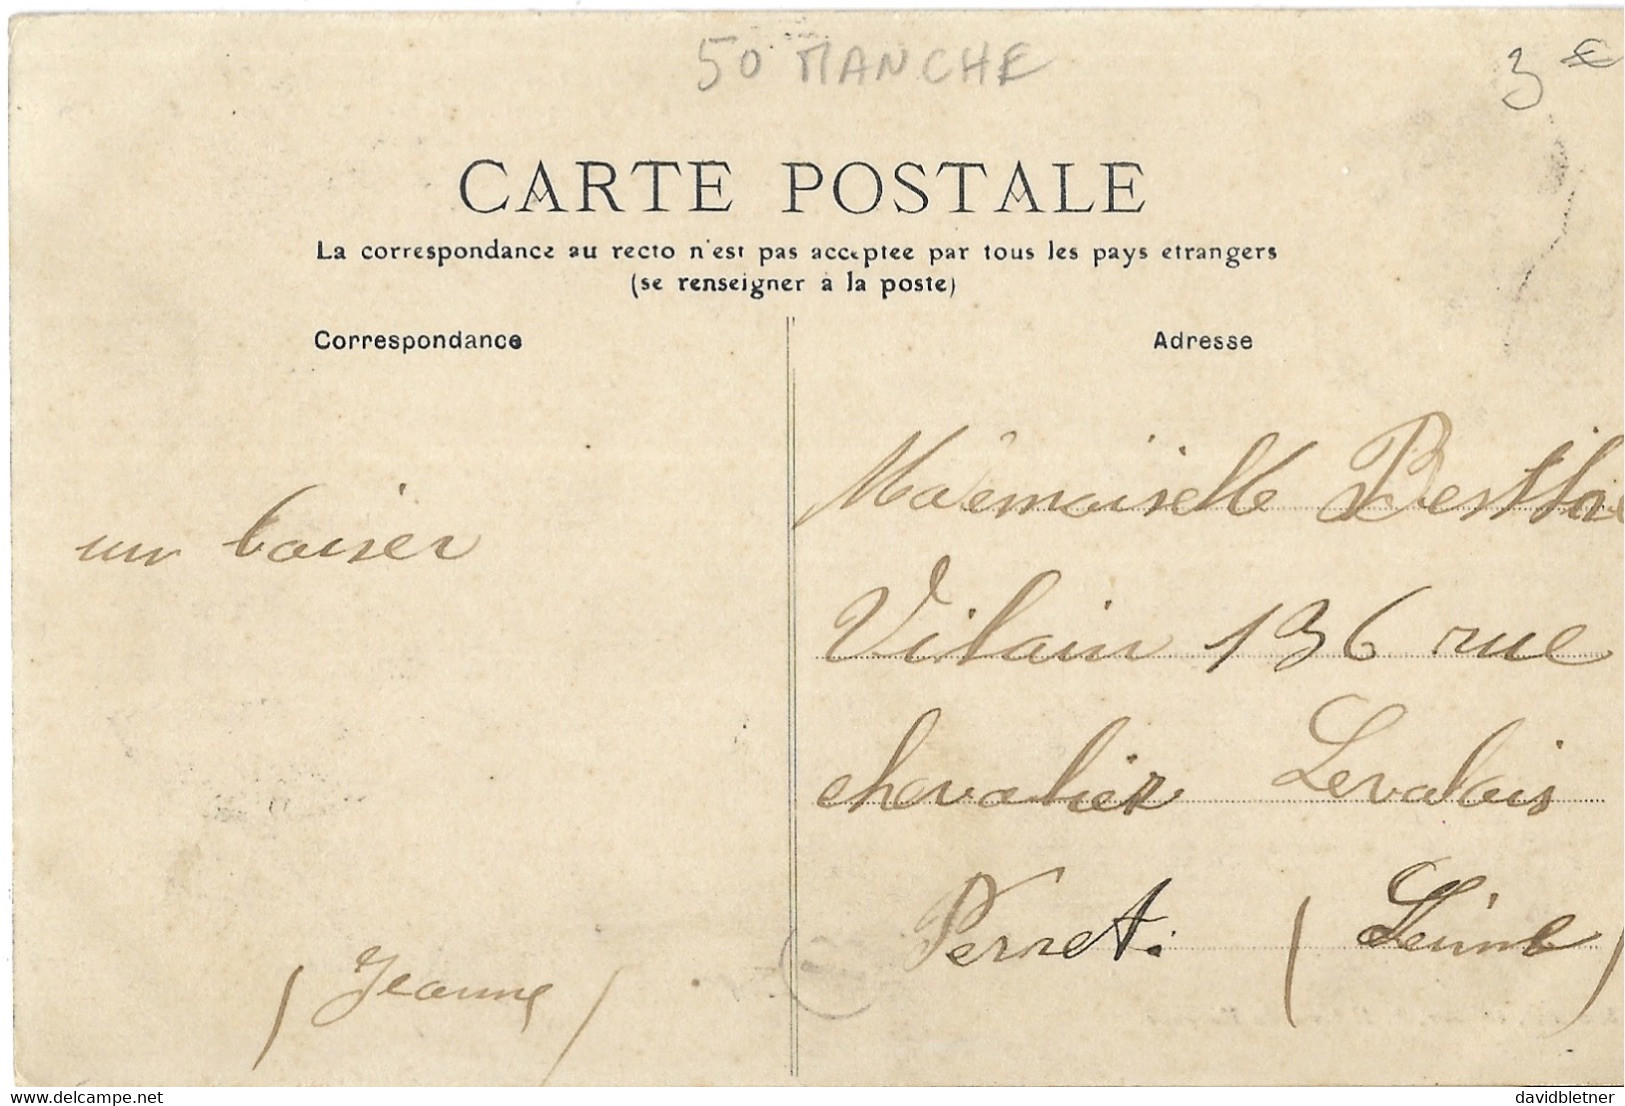 50 MANCHE
3 €
CARTE POSTALE
La correspondance au recto n'est pas acceptee par tous les pays etrangers
(se renseigner à la poste)
Correspondance
Adresse
Mademoiselle Berthe
un baiser
Vilain 136 rue
chevalier Levalois
Perret. (Seine)
(Jeanne)
delcampe.net
davidbletner